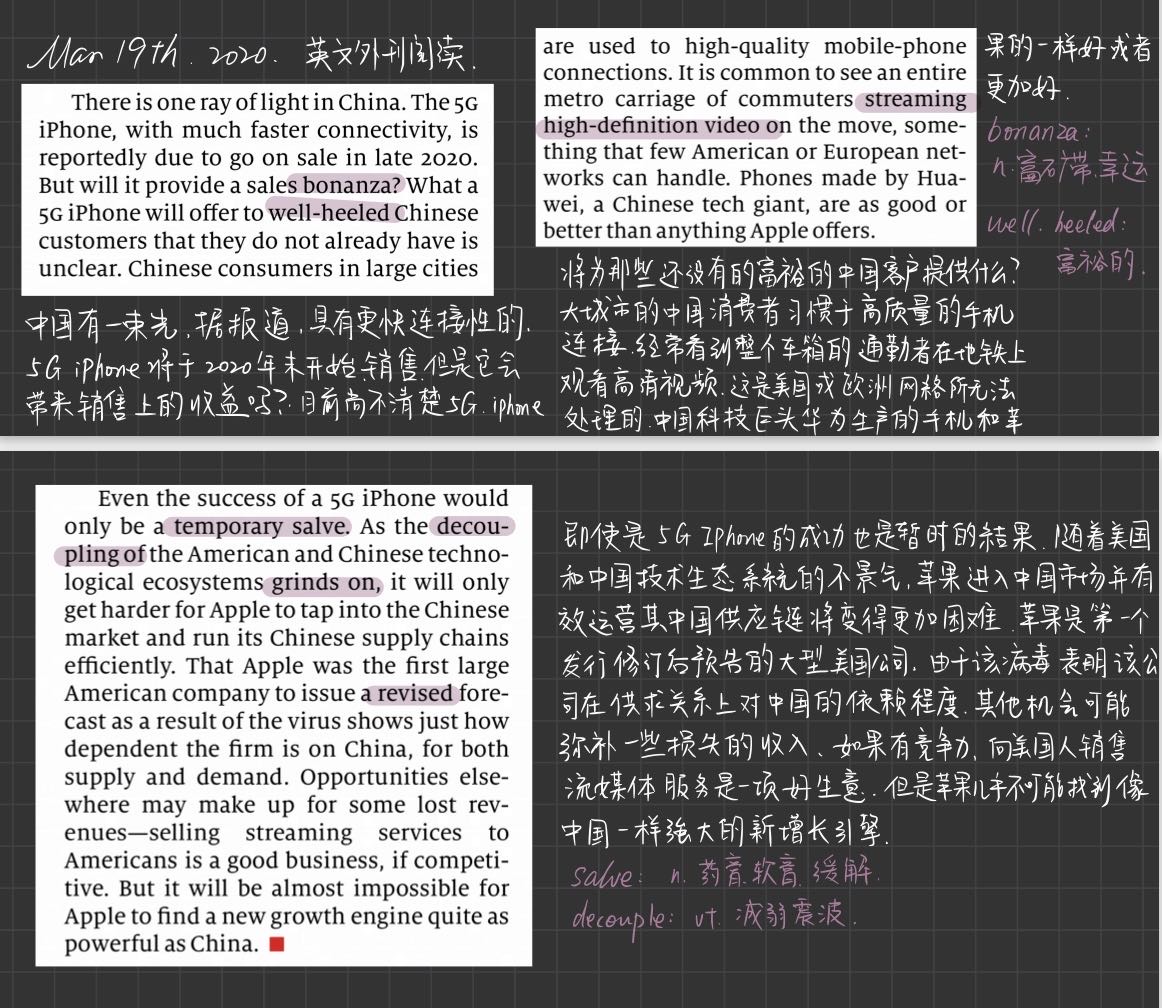 Mar 19th. 2020. 英文外刊阅读.
There is one ray of light in China. The 5G
iPhone, with much faster connectivity, is
reportedly due to go on sale in late 2020.
But will it provide a sales bonanza? What a
5G iPhone will offer to well-heeled Chinese
customers that they do not already have is
unclear. Chinese consumers in large cities
中国有一束光,据报道,具有更快连接性的.
5G iPhone 将于2020年末开始销售.但是它会
带来销售上的收益吗?目前尚不清楚5G.iphone
are used to high-quality mobile-phone
connections. It is common to see an entire
metro carriage of commuters streaming
high-definition video on the move, some-
thing that few American or European net-
works can handle. Phones made by Hua-
wei, a Chinese tech giant, are as good or
better than anything Apple offers.
将为那些还没有的富裕的中国客户提供什么?
大城市的中国消费者习惯于高质量的手机
连接.经常看到整个车箱的通勤者在地铁上
观看高清视频.这是美国或欧洲网络所无法
处理的.中国科技巨头华为生产的手机和苹
果的一样好或者
更加好.
bonanza:
n.富矿带.幸运
well.heeled:
富裕的.
Even the success of a 5G iPhone would
only be a temporary salve. As the decou-
pling of the American and Chinese techno-
logical ecosystems grinds on, it will only
get harder for Apple to tap into the Chinese
market and run its Chinese supply chains
efficiently. That Apple was the first large
American company to issue a revised fore-
cast as a result of the virus shows just how
dependent the firm is on China, for both
supply and demand. Opportunities else-
where may make up for some lost rev-
enues—selling streaming services to
Americans is a good business, if competi-
tive. But it will be almost impossible for
Apple to find a new growth engine quite as
powerful as China.
即使是5G Iphone的成功也是暂时的结果.随着美国
和中国技术生态系统的不景气,苹果进入中国市场并有
效运营其中国供应链将变得更加困难.苹果是第一个
发行修订后预告的大型美国公司.由于该病毒表明该公
司在供求关系上对中国的依赖程度.其他机会可能
弥补一些损失的收入、如果有竞争力,向美国人销售
流媒体服务是一项好生意.但是苹果几乎不可能找到像
中国一样强大的新增长引擎.
salve: n.药膏.软膏.缓解.
decouple: vt.减弱震波.